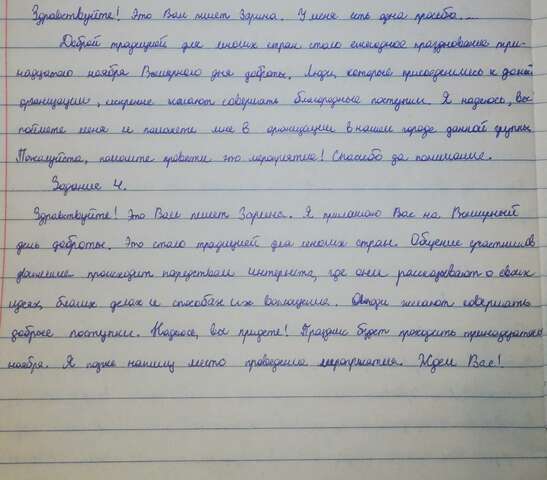 Здравствуйте! Это Вам пишет Зарина. У меня есть одна просьба...
Доброй традицией для многих стран стало ежегодное празднование три-
надцатого ноября Всемирного дня доброты. Люди, которые присоединились к данной
организации, искренне желают совершать благородные поступки. Я надеюсь, вы
поймете меня и поможете мне в организации в нашем городе данной группы.
Пожалуйста, помогите провести это мероприятие! Спасибо за понимание.
Задание 4.
Здравствуйте! Это Вам пишет Зарина. Я приглашаю Вас на Всемирный
день доброты. Это стало традицией для многих стран. Общение участников
движения происходит посредством интернета, где они рассказывают о своих
идеях, благих делах и способах их воплощения. Люди желают совершать
добрые поступки. Надеюсь, вы придете! Праздник будет проходить тринадцатого
ноября. Я позже напишу место проведения мероприятия. Ждем Вас!